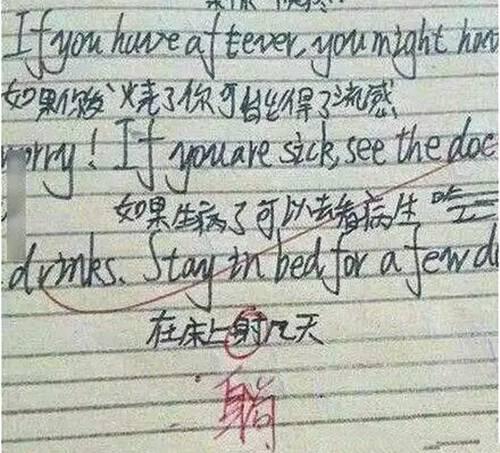 If you have a ftever, you might hav
如果你发烧了你可能得了流感
worry! If you are sick, see the doc
如果生病了可以去看病生 吃
drinks. Stay in bed for a few d
在床上射几天
躺